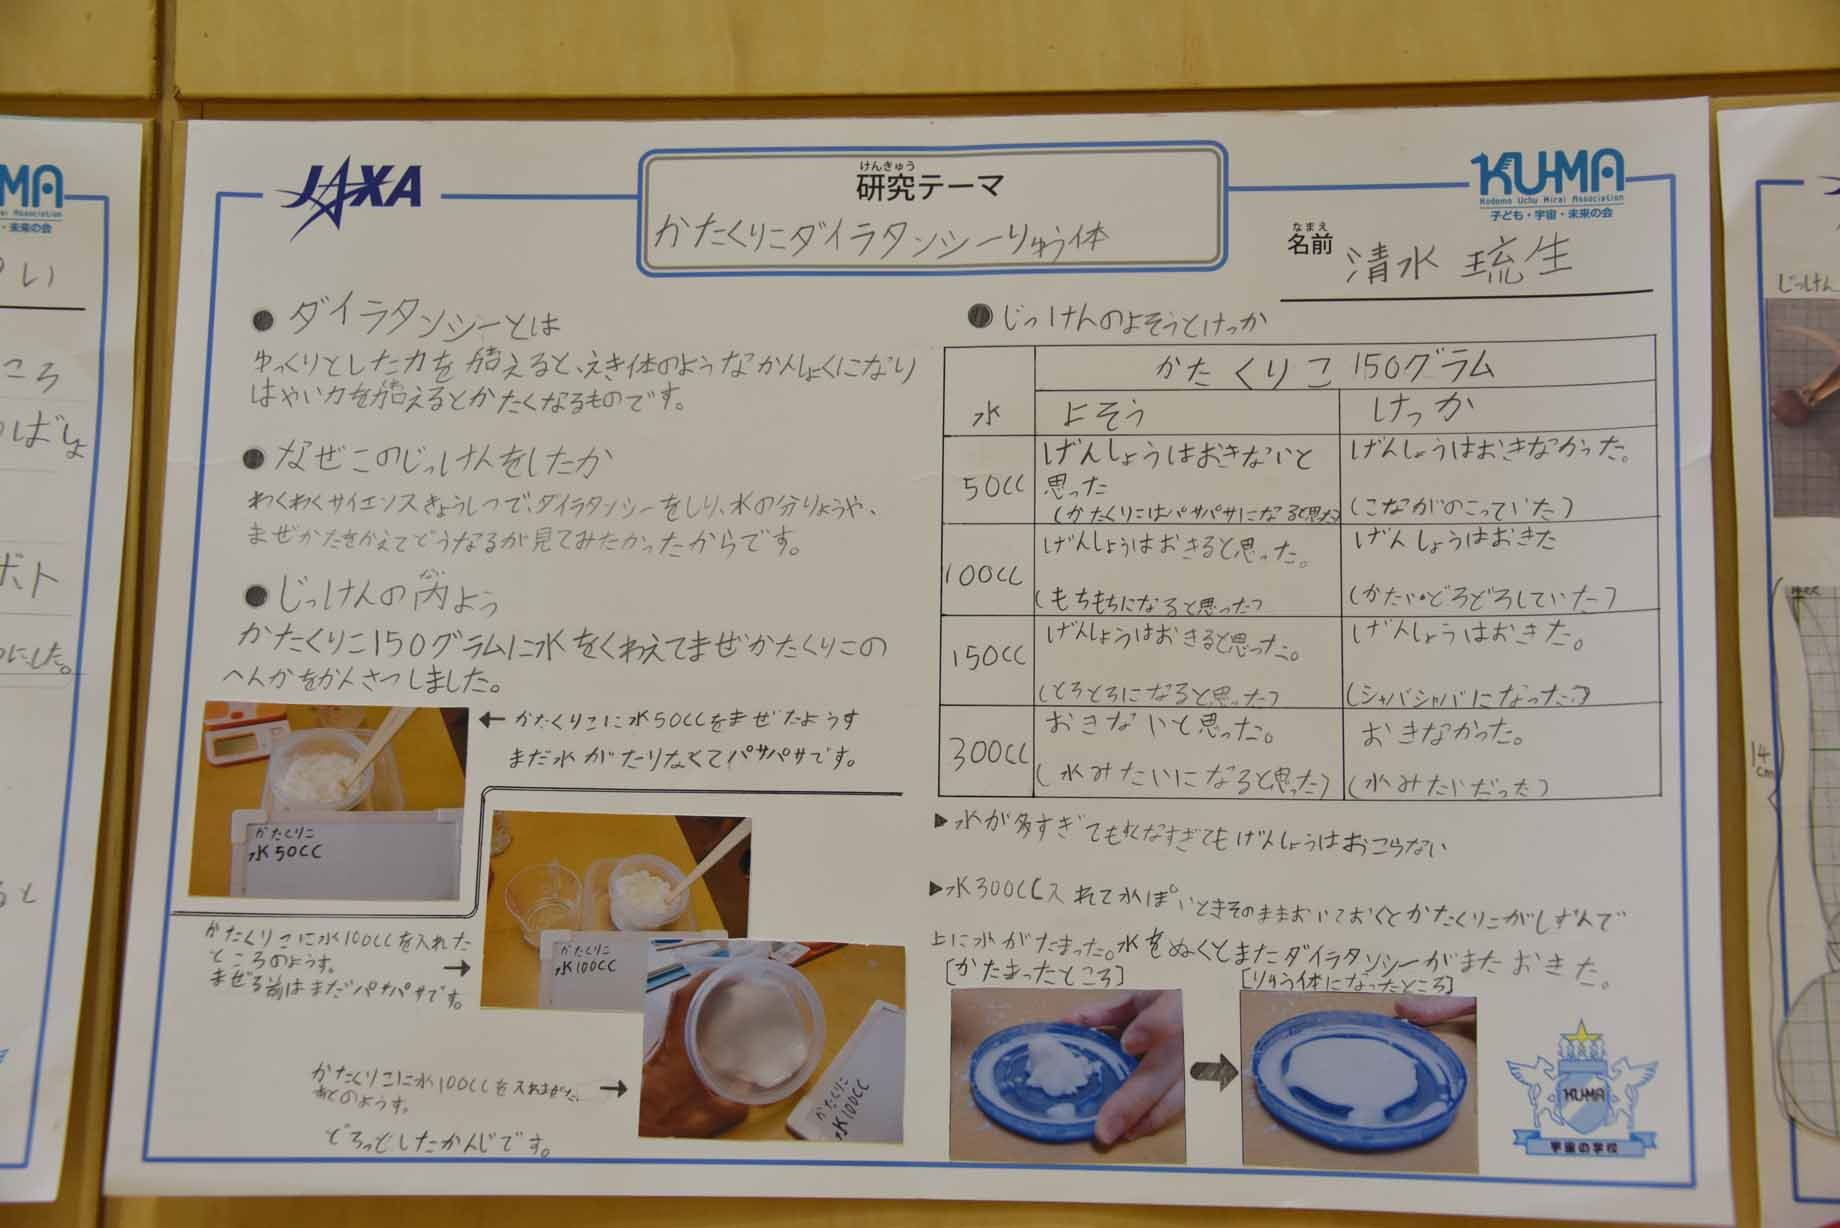 JAXA
けんきゅう
研究テーマ
かたくりこダイラタンシーりゅう体
KU-MA
Kodomo Uchu Mirai Association
子ども・宇宙・未来の会
なまえ
名前 清水 琉生
● ダイラタンシーとは
ゆっくりとした力を加えると、えき体のようなかんしょくになり
はやい力を加えるとかたくなるものです。
● なぜこのじっけんをしたか
わくわくサイエンスきょうしつで、ダイラタンシーをしり、水の分りょうや、
まぜかたをかえてどうなるか見てみたかったからです。
● じっけんの内よう
かたくりこ150グラムに水をくわえてまぜかたくりこの
へんかをかんさつしました。
← かたくりこに水50CCをまぜたようす
まだ水がたりなくてパサパサです。
かたくりこ
水50CC
かたくりこに水100CCを入れた
ところのようす。
まぜる前はまだパサパサです。
→
かたくりこ
水100CC
かたくりこに水100CCを入れまぜた →
あとのようす。
どろっとしたかんじです。
かたくりこ
水100CC
● じっけんのよそうとけっか
かたくりこ 150グラム
水 よそう けっか
50CC
げんしょうはおきないと
思った
(かたくりこはパサパサになると思った)
げんしょうはおきなかった。
(こながのこっていた)
100CC
げんしょうはおきると思った。
(もちもちになると思った)
げんしょうはおきた
(かたい・どろどろしていた)
150CC
げんしょうはおきると思った。
(とろとろになると思った)
げんしょうはおきた。
(シャバシャバになった)
300CC
おきないと思った。
(水みたいになると思った)
おきなかった。
(水みたいだった)
▶水が多すぎてもれなすぎてもげんしょうはおこらない
▶水300CC入れて水ぽいときそのままおいておくとかたくりこがしずんで
上に水がたまった。水をぬくとまたダイラタンシーがまたおきた。
[かたまったところ]
[りゅう体になったところ]
KU-MA
宇宙の学校
MA
rai Association
・未来の会
い
ころ
ばしょ
ボト
にした。
ると
じっけん
14
cm